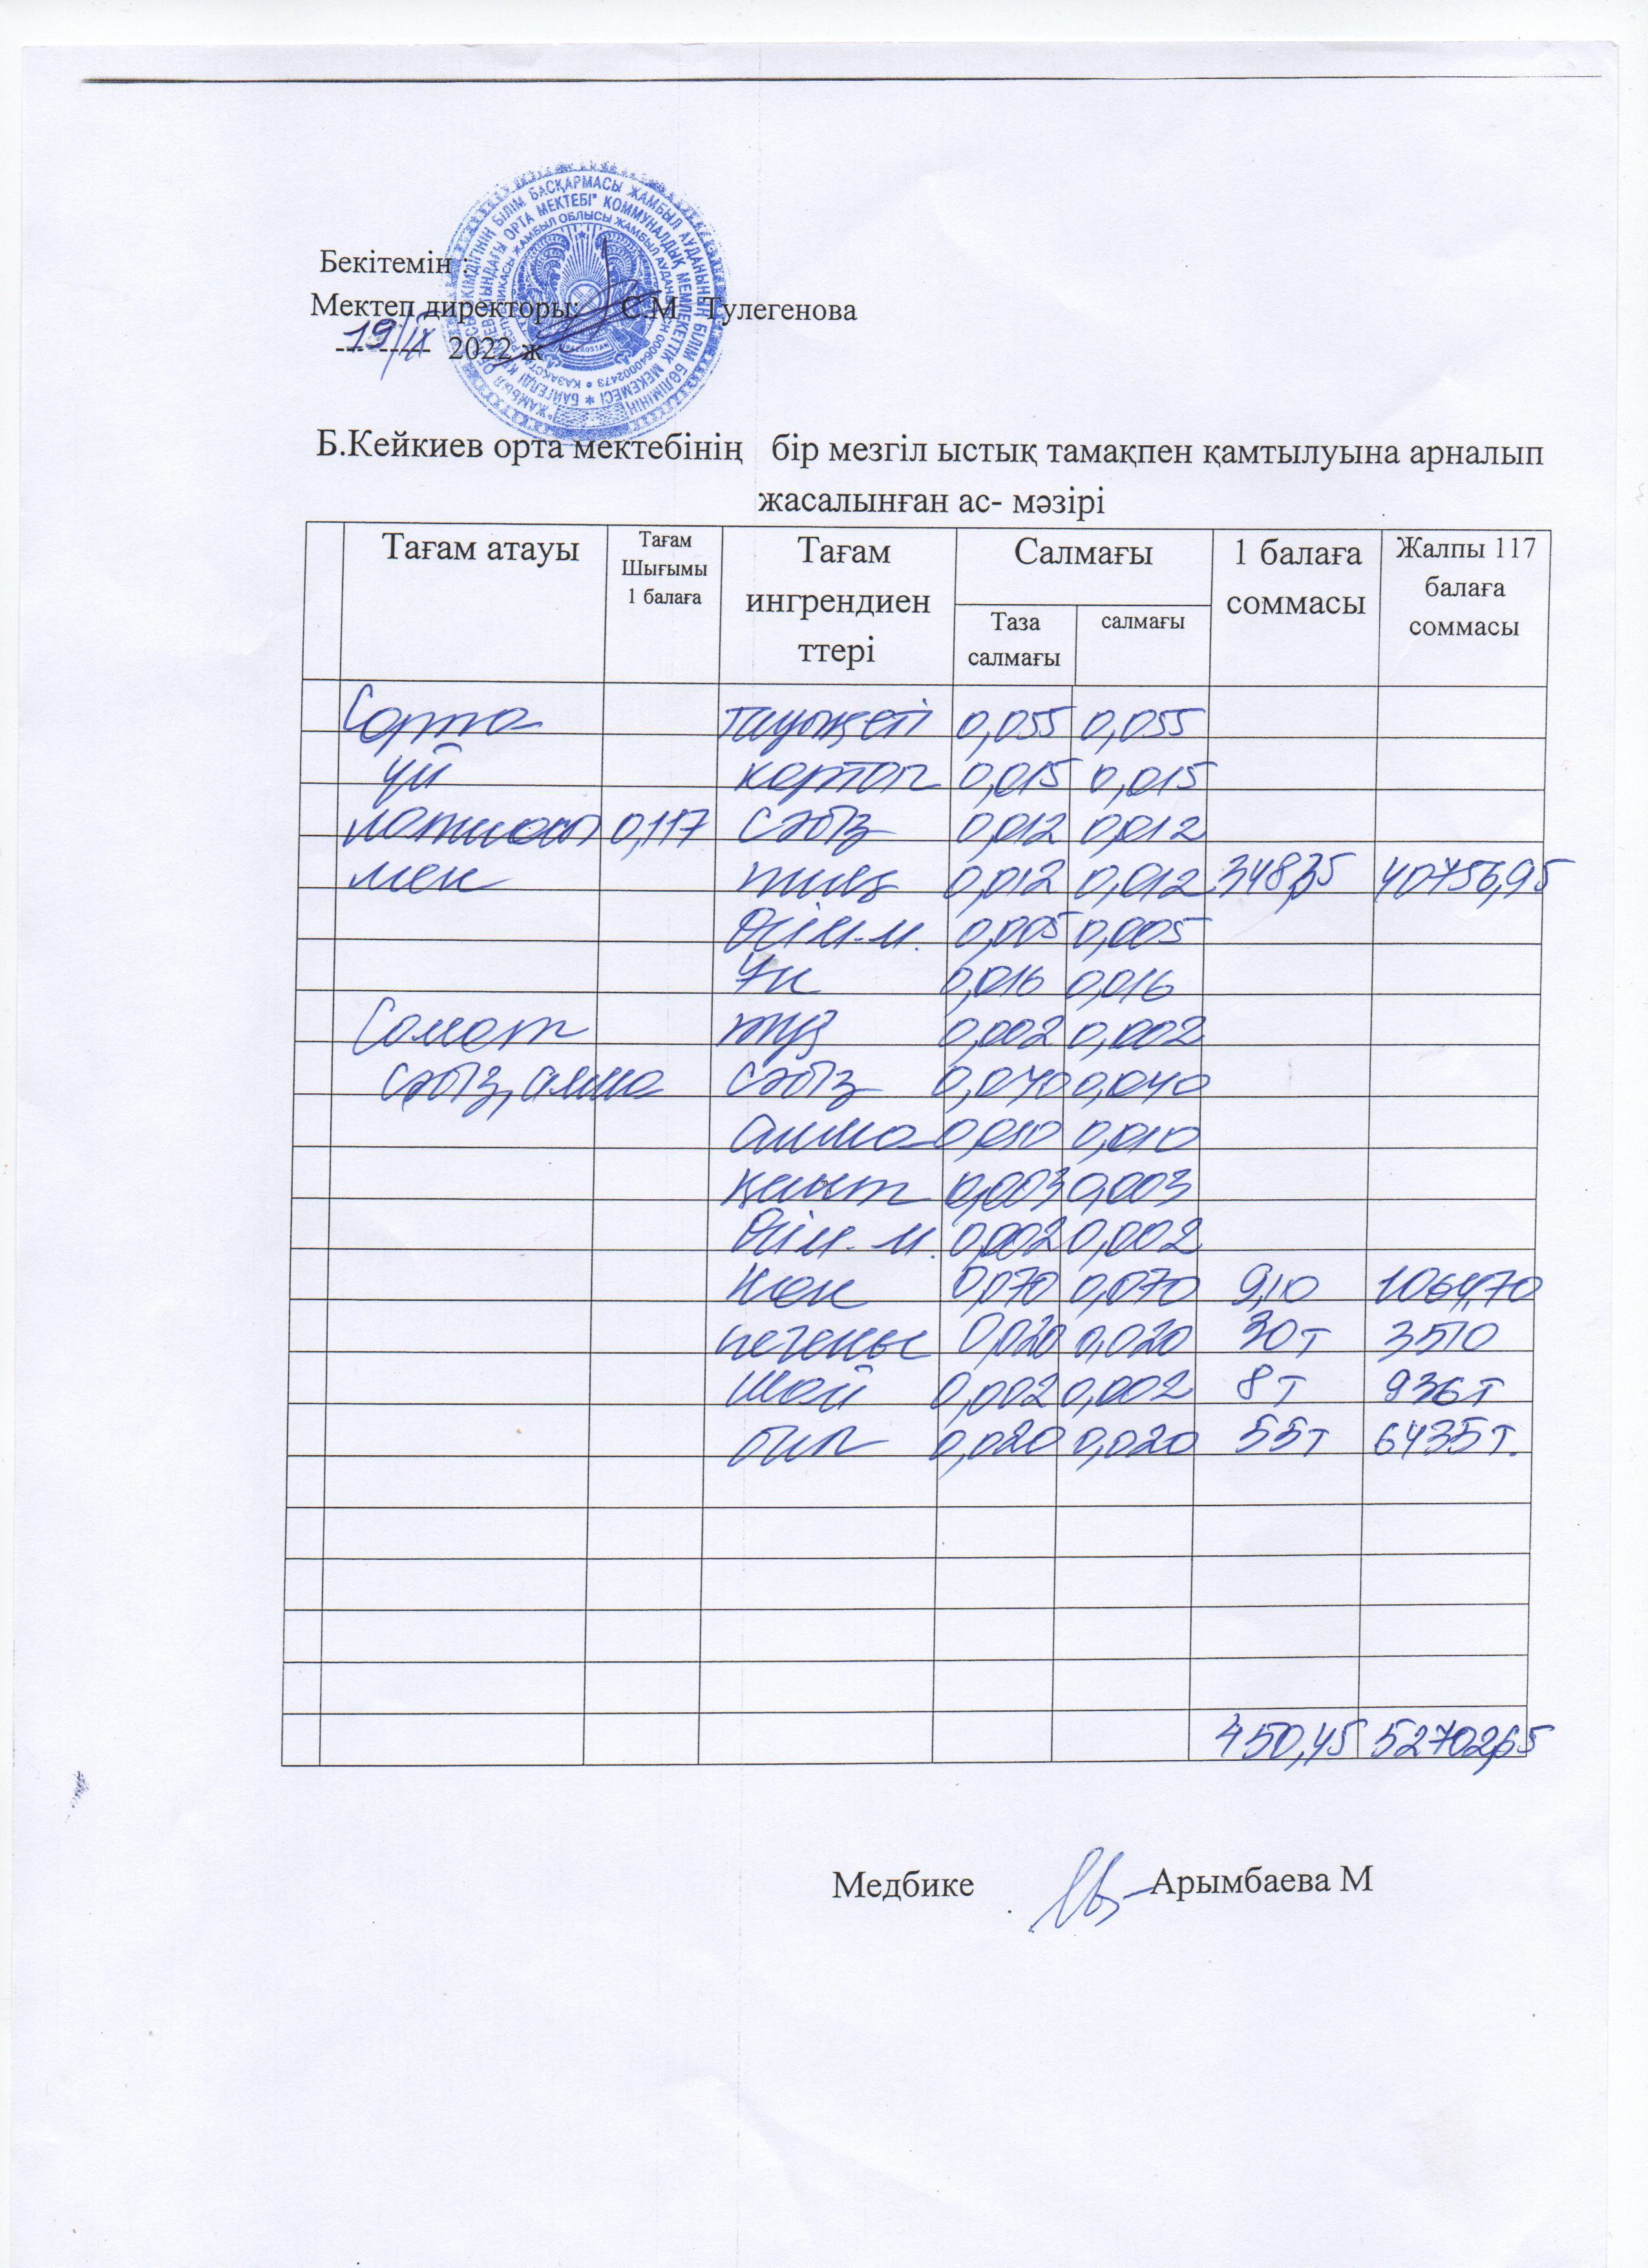 Бекітемін :
Мектеп директоры: С.М Тулегенова
19/IX 2022 ж
Б.Кейкиев орта мектебінің бір мезгіл ыстық тамақпен қамтылуына арналып
жасалынған ас- мәзірі
Тағам атауы Тағам Шығымы 1 балаға Тағам ингрендиен ттері Салмағы Таза салмағы салмағы 1 балаға соммасы Жалпы 117 балаға соммасы
Сорпа тауық еті 0,055 0,055
үй картоп 0,015 0,015
0,117 сәбіз 0,012 0,012
мен пияз 0,012 0,012 348,35 40756,95
Өсім.м. 0,005 0,005
Ұн 0,016 0,016
Салат тұз 0,002 0,002
сәбіз, алма сәбіз 0,040 0,040
алма 0,010 0,010
қант 0,003 0,003
Өсім. м. 0,002 0,002
Нан 0,070 0,070 9,10 1064,70
печенье 0,020 0,020 30т 3510
Шай 0,002 0,002 8т 936т
0,020 0,020 55т 6435т.
450,45 52702,65
Медбике Арымбаева М